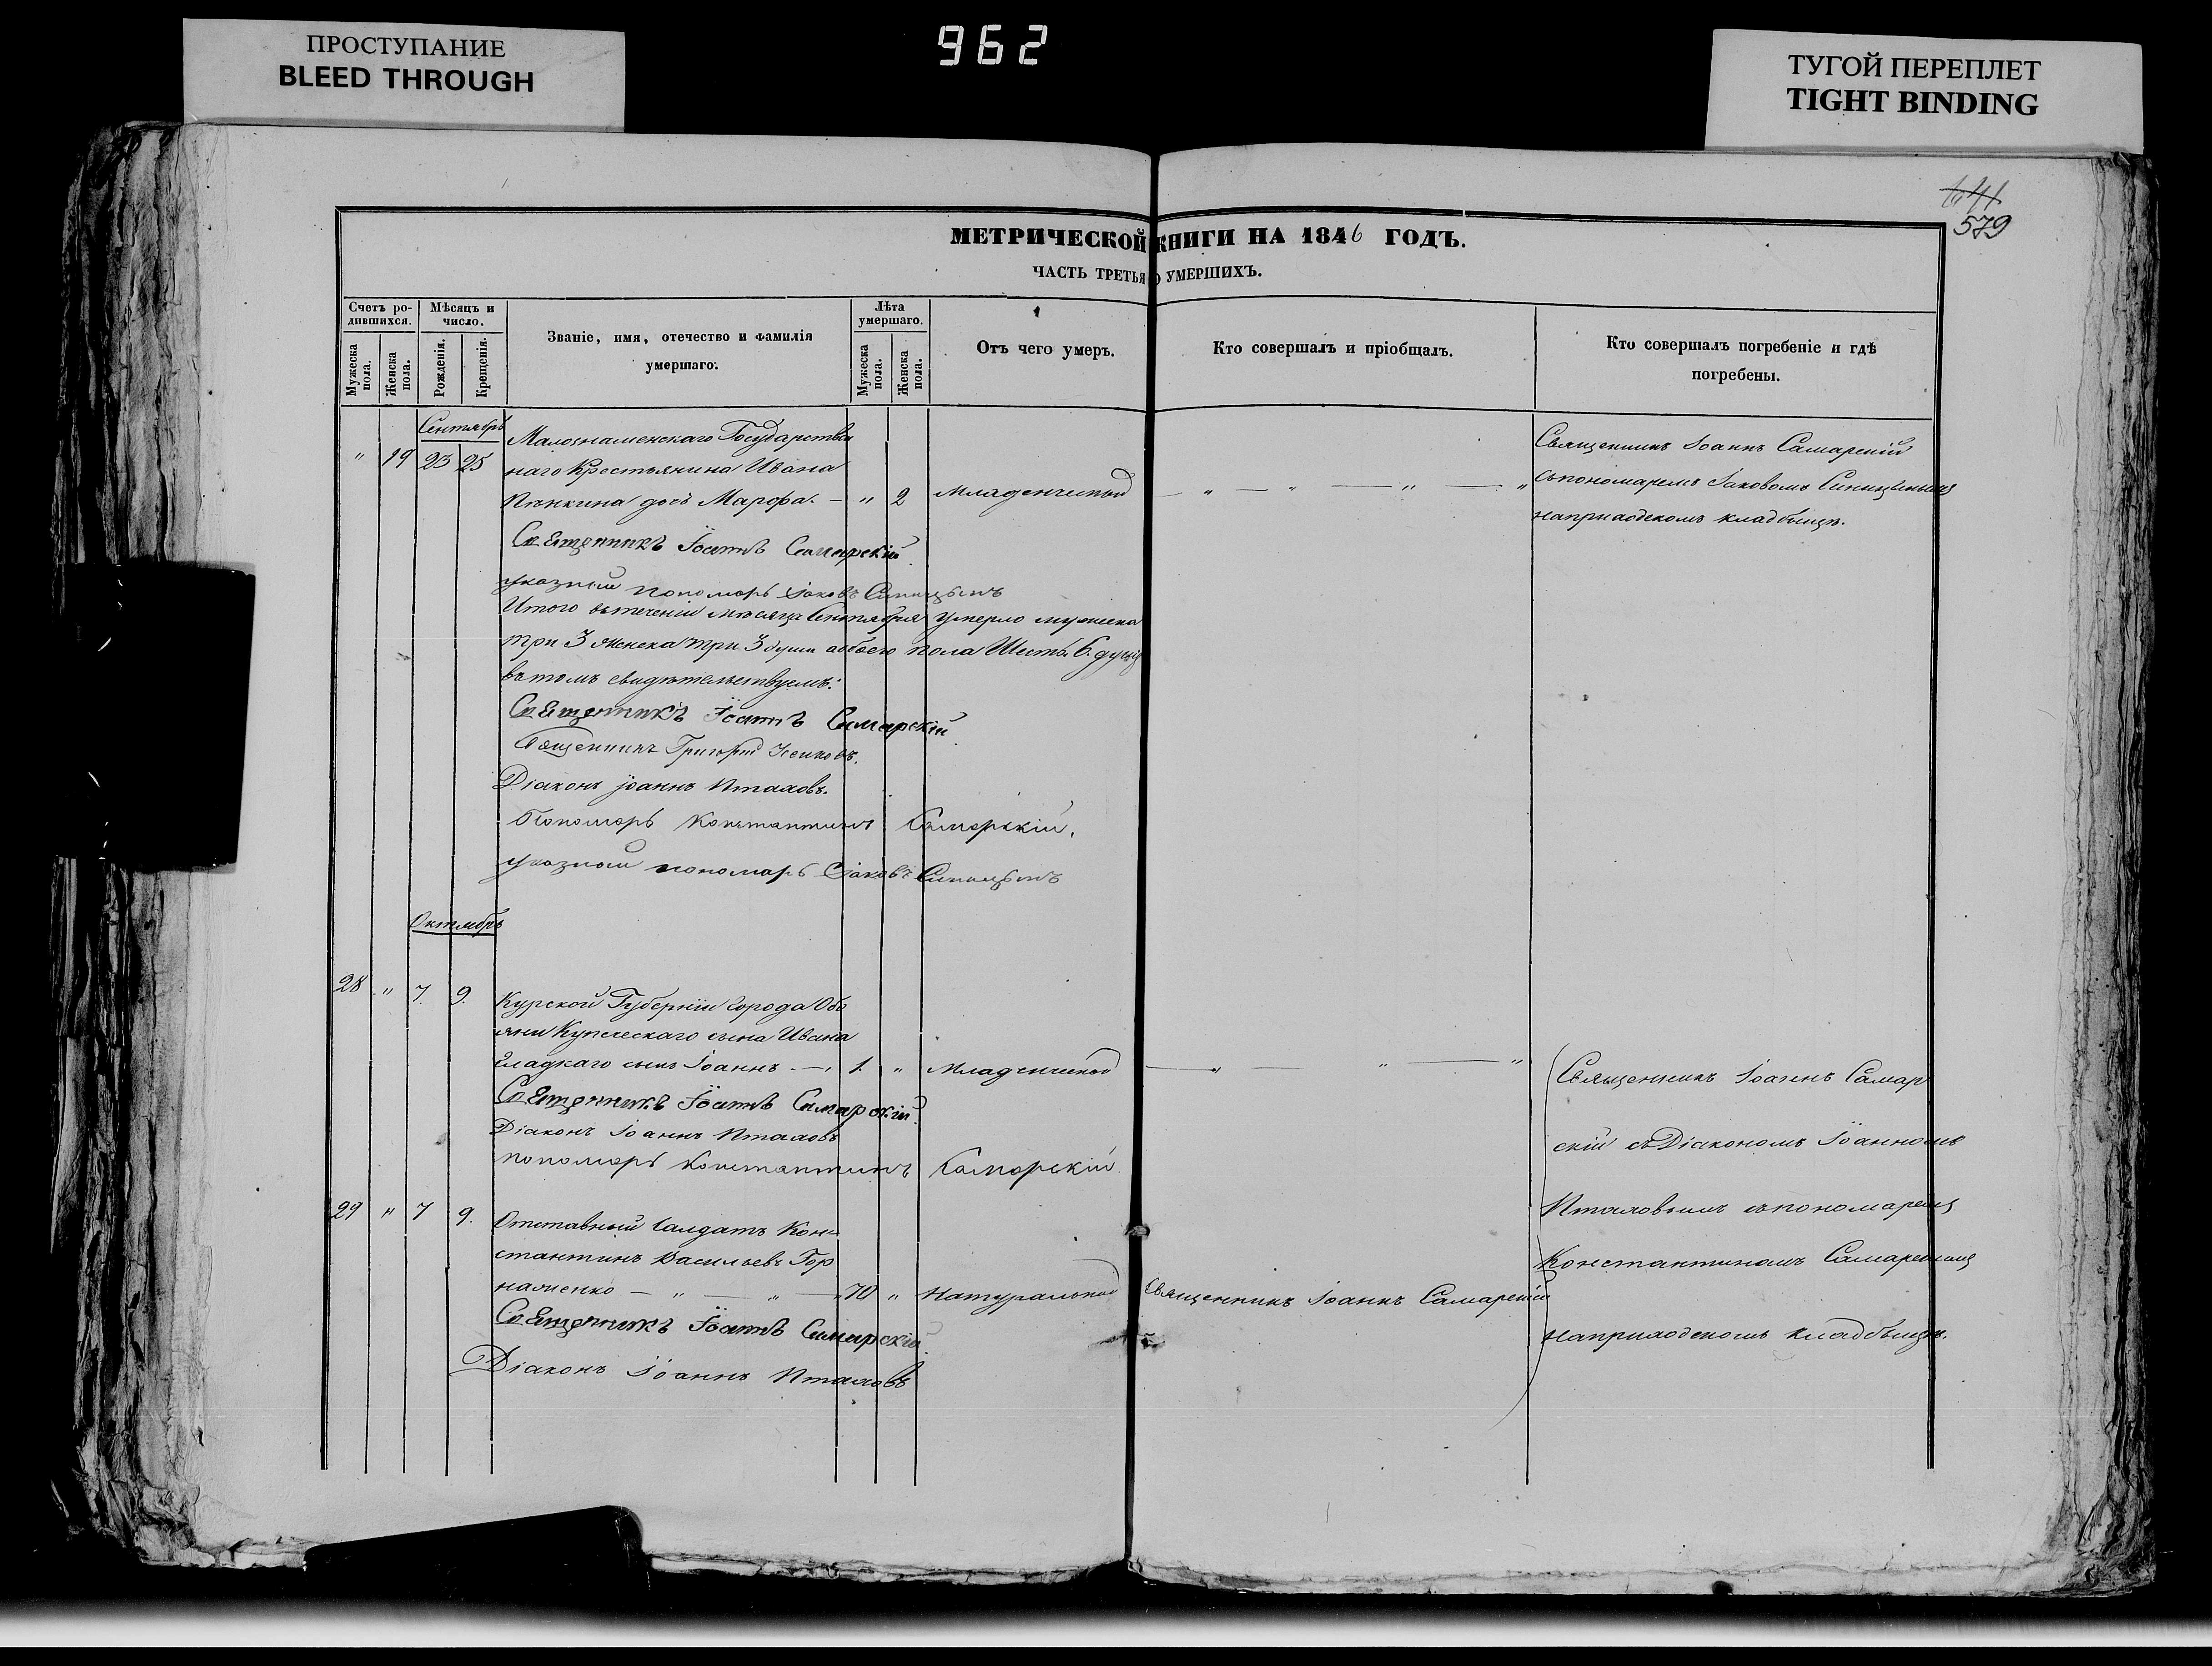 ПРОСТУПАНИЕ
BLEED THROUGH
962
ТУГОЙ ПЕРЕПЛЕТ
TIGHT BINDING
579
МЕТРИЧЕСКОЙ КНИГИ НА 1846 ГОДЪ.
ЧАСТЬ ТРЕТЬЯ О УМЕРШИХЪ.
Счетъ ро-
дившихся.
Мужеска пола.
Женска пола.
Мѣсяцъ и
число.
Рожденія.
Крещенія.
Званіе, имя, отечество и фамилія
умершаго.
Лѣта
умершаго.
Мужеска пола.
Женска пола.
Отъ чего умеръ.
Кто совершалъ и пріобщалъ.
Кто совершалъ погребеніе и гдѣ
погребены.
Сентябрь
" 19 23 25
Малознаменскаго Государствен
наго Крестьянина Ивана
Пѣнкина дочь Марфа. — " 2 Младенческой — " — " — " — "
Священникъ Іоаннъ Самарскій
съ пономаремъ Іаковомъ Синицинымъ
на приходскомъ кладбищѣ.
Священникъ Іоаннъ Самарскій
указный пономарь Іаковъ Синицынъ
Итого въ теченіи мѣсяца Сентября умерло мужеска
три 3 женска три 3 души обоего пола Шесть 6. душъ
въ томъ свидѣтельствуемъ:
Священникъ Іоаннъ Самарскій
Священникъ Григорій
Діаконъ Іоаннъ Птаховъ.
Пономарь Константинъ Самарскій.
указный пономарь Іаковъ Синицынъ
Октябрь
28 " 7. 9.
Курской Губерніи города Обо
яни Купеческаго сына Ивана
Гладкаго сынъ Іоаннъ — 1. " Младенческой — " — " — "
Священникъ Іоаннъ Самарскій
Діаконъ Іоаннъ Птаховъ
пономарь Константинъ Самарскій
29 " 7 9.
Отставный Салдатъ Кон=
стантинъ Васильевъ Гор
— " — " — 70 " Натуральной Священникъ Іоаннъ Самарскій
Священникъ Іоаннъ Самарскій
Діаконъ Іоаннъ Птаховъ
Священникъ Іоаннъ Самар
скій съ Діакономъ Іоанномъ
Птаховымъ съ пономаремъ
Константиномъ Самарскимъ
на приходскомъ кладбищѣ.